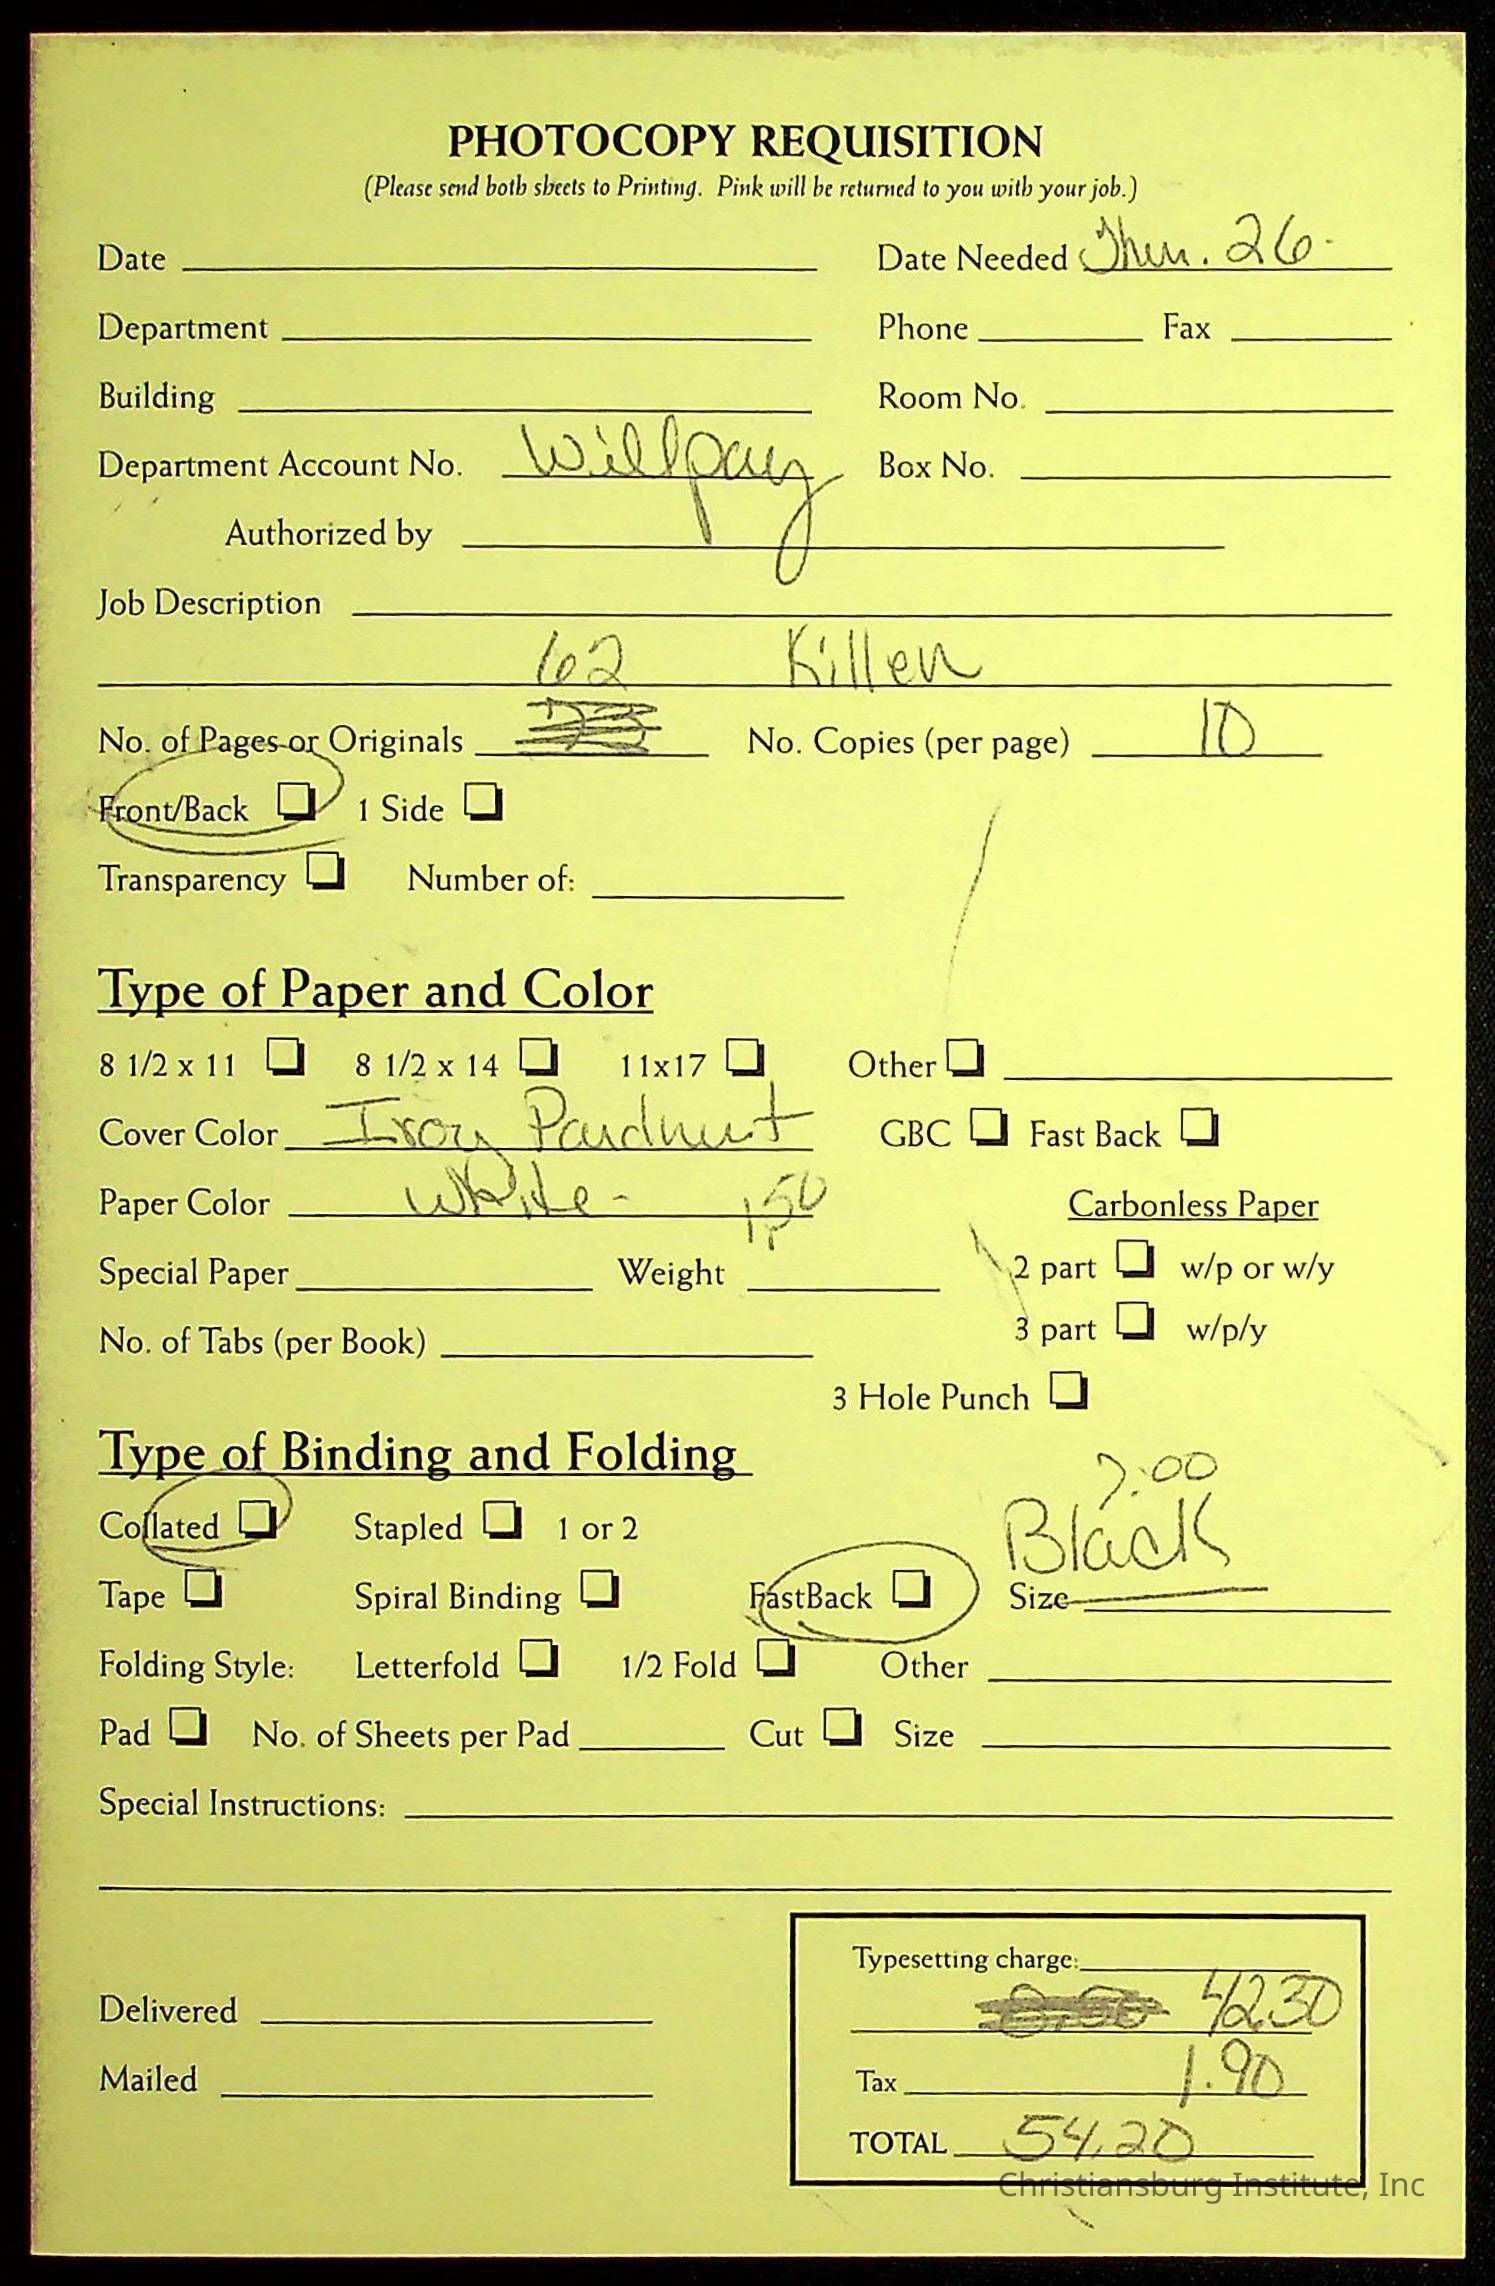 PHOTOCOPY REQUISITION
(Please send both sheets to Printing. Pink will be returned to you with your job.)
Date Date Needed Thur. 26
Department Phone Fax
Building Room No.
Department Account No. Will pay Box No.
Authorized by
Job Description
62 Killen
No. of Pages or Originals No. Copies (per page) 10
Front/Back 1 Side
Transparency Number of:
Type of Paper and Color
8 1/2 x 11 8 1/2 x 14 11x17 Other
Cover Color GBC Fast Back
Paper Color White - Carbonless Paper
Special Paper Weight 2 part w/p or w/y
No. of Tabs (per Book) 3 part w/p/y
3 Hole Punch
Type of Binding and Folding
7.00
Collated Stapled 1 or 2 Black
Tape Spiral Binding FastBack Size
Folding Style: Letterfold 1/2 Fold Other
Pad No. of Sheets per Pad Cut Size
Special Instructions:
Typesetting charge:
Delivered 42.30
Mailed Tax 1.90
TOTAL 54.20
Christiansburg Institute, Inc